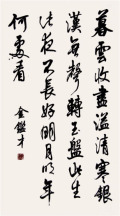 暮雲收盡溢清寒銀
漢無聲轉玉盤此生
此夜不長好明月明年
何處看
金鑑才